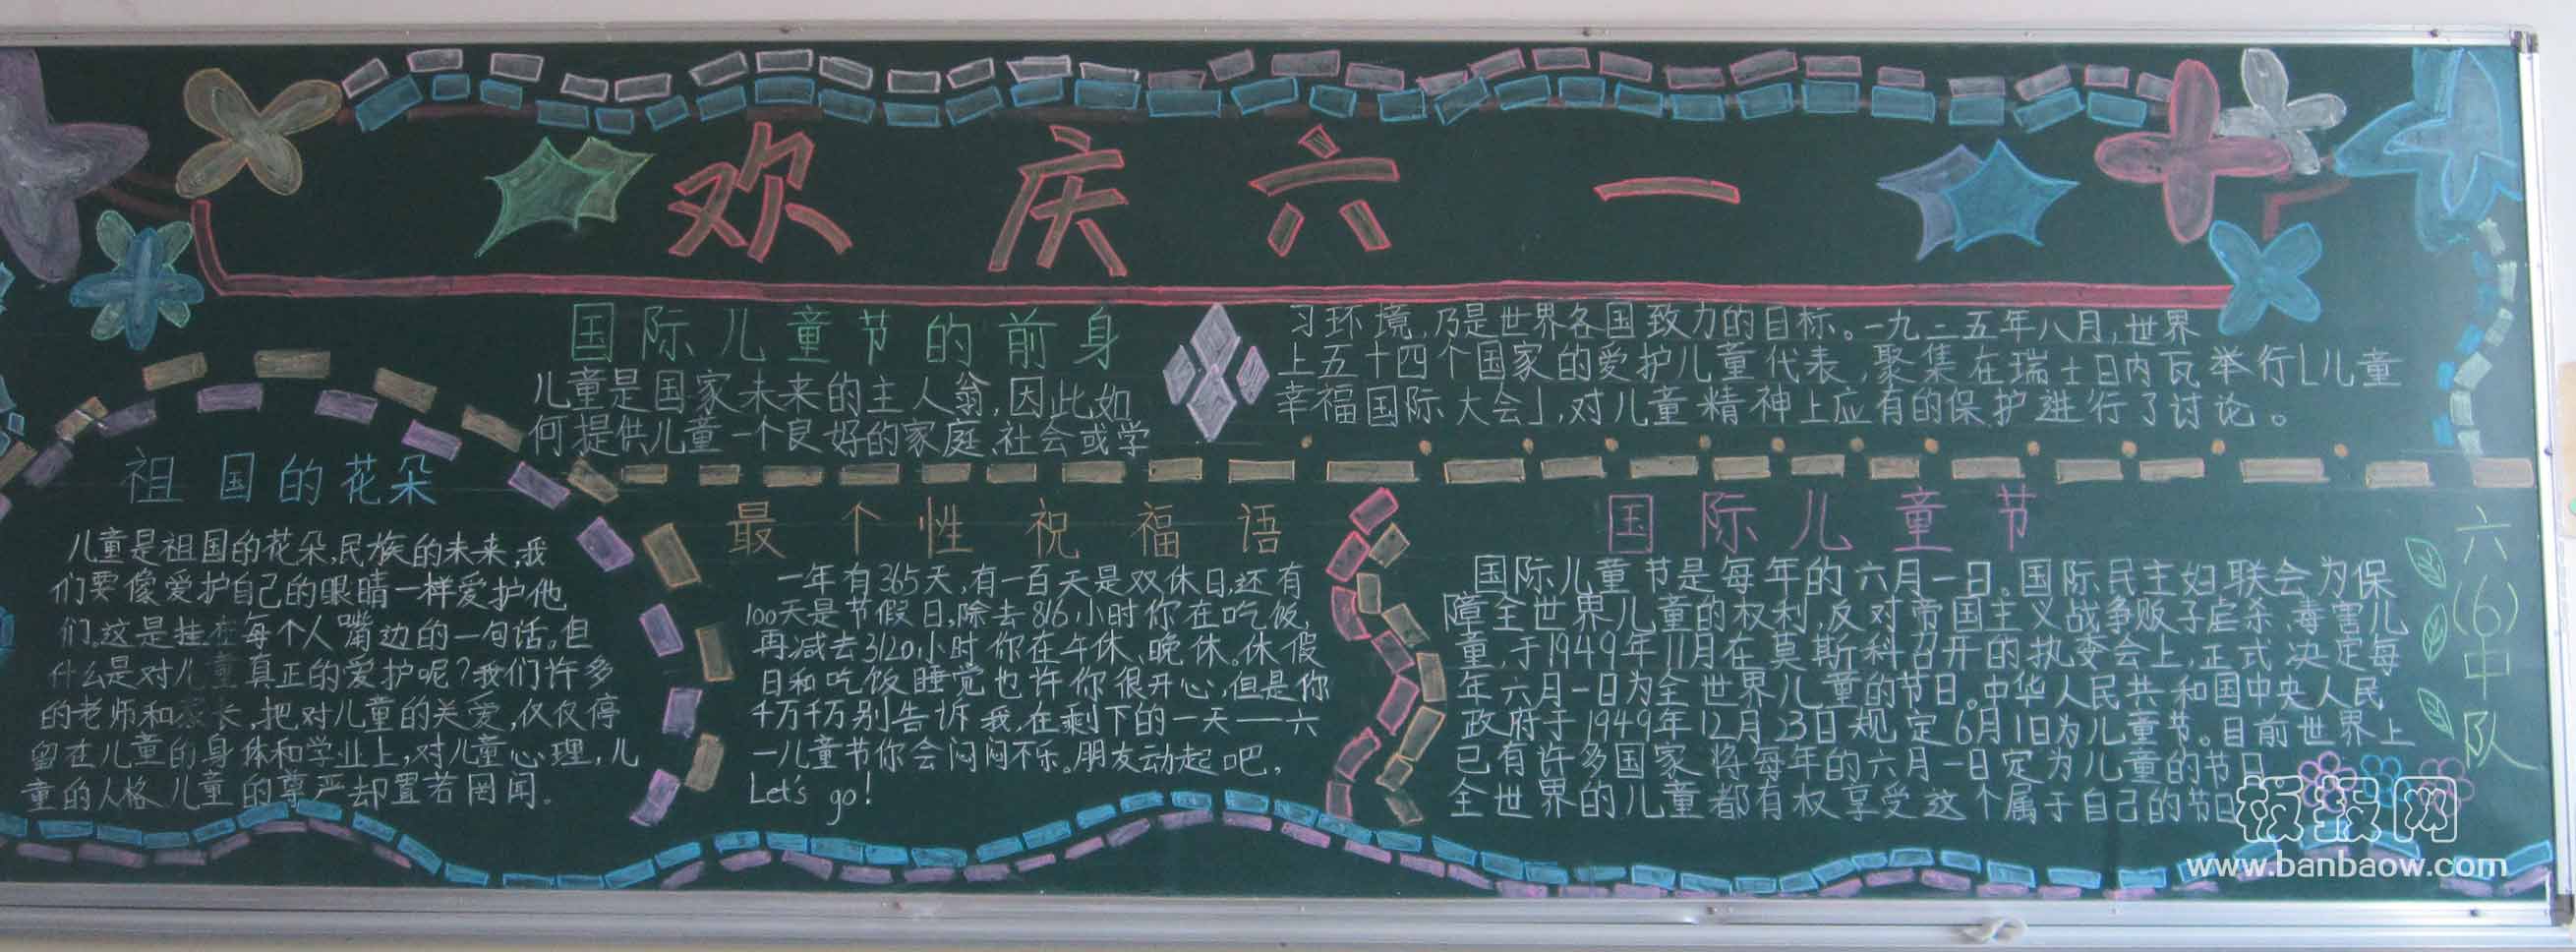 欢庆六一
国际儿童节的前身
儿童是国家未来的主人翁,因此如
何提供儿童一个良好的家庭、社会或学
习环境,乃是世界各国致力的目标。一九二五年八月,世界
上五十四个国家的爱护儿童代表,聚集在瑞士日内瓦举行「儿童
幸福国际大会」,对儿童精神上应有的保护进行了讨论。
祖国的花朵
儿童是祖国的花朵,民族的未来,我
们要像爱护自己的眼睛一样爱护他
们.这是挂在每个人嘴边的一句话。但
什么是对儿童真正的爱护呢?我们许多
的老师和家长,把对儿童的关爱,仅仅停
留在儿童的身体和学业上,对儿童心理,儿
童的人格儿童的尊严却置若罔闻。
最个性祝福语
一年有365天,有一百天是双休日,还有
100天是节假日,除去816小时你在吃饭,
再减去3120小时你在午休、晚休。休假
日和吃饭睡觉也许你很开心,但是你
千万千万别告诉我,在剩下的一天——六
一儿童节你会闷闷不乐。朋友动起吧,
Let's go!
国际儿童节
国际儿童节是每年的六月一日。国际民主妇联会为保
障全世界儿童的权利,反对帝国主义战争贩子虐杀、毒害儿
童,于1949年11月在莫斯科召开的执委会上,正式决定每
年六月一日为全世界儿童的节日。中华人民共和国中央人民
政府于1949年12月23日规定6月1日为儿童节。目前世界上
已有许多国家将每年的六月一日定为儿童的节日
全世界的儿童都有权享受这个属于自己的节日
六(6)中队
板报网
www.banbaow.com